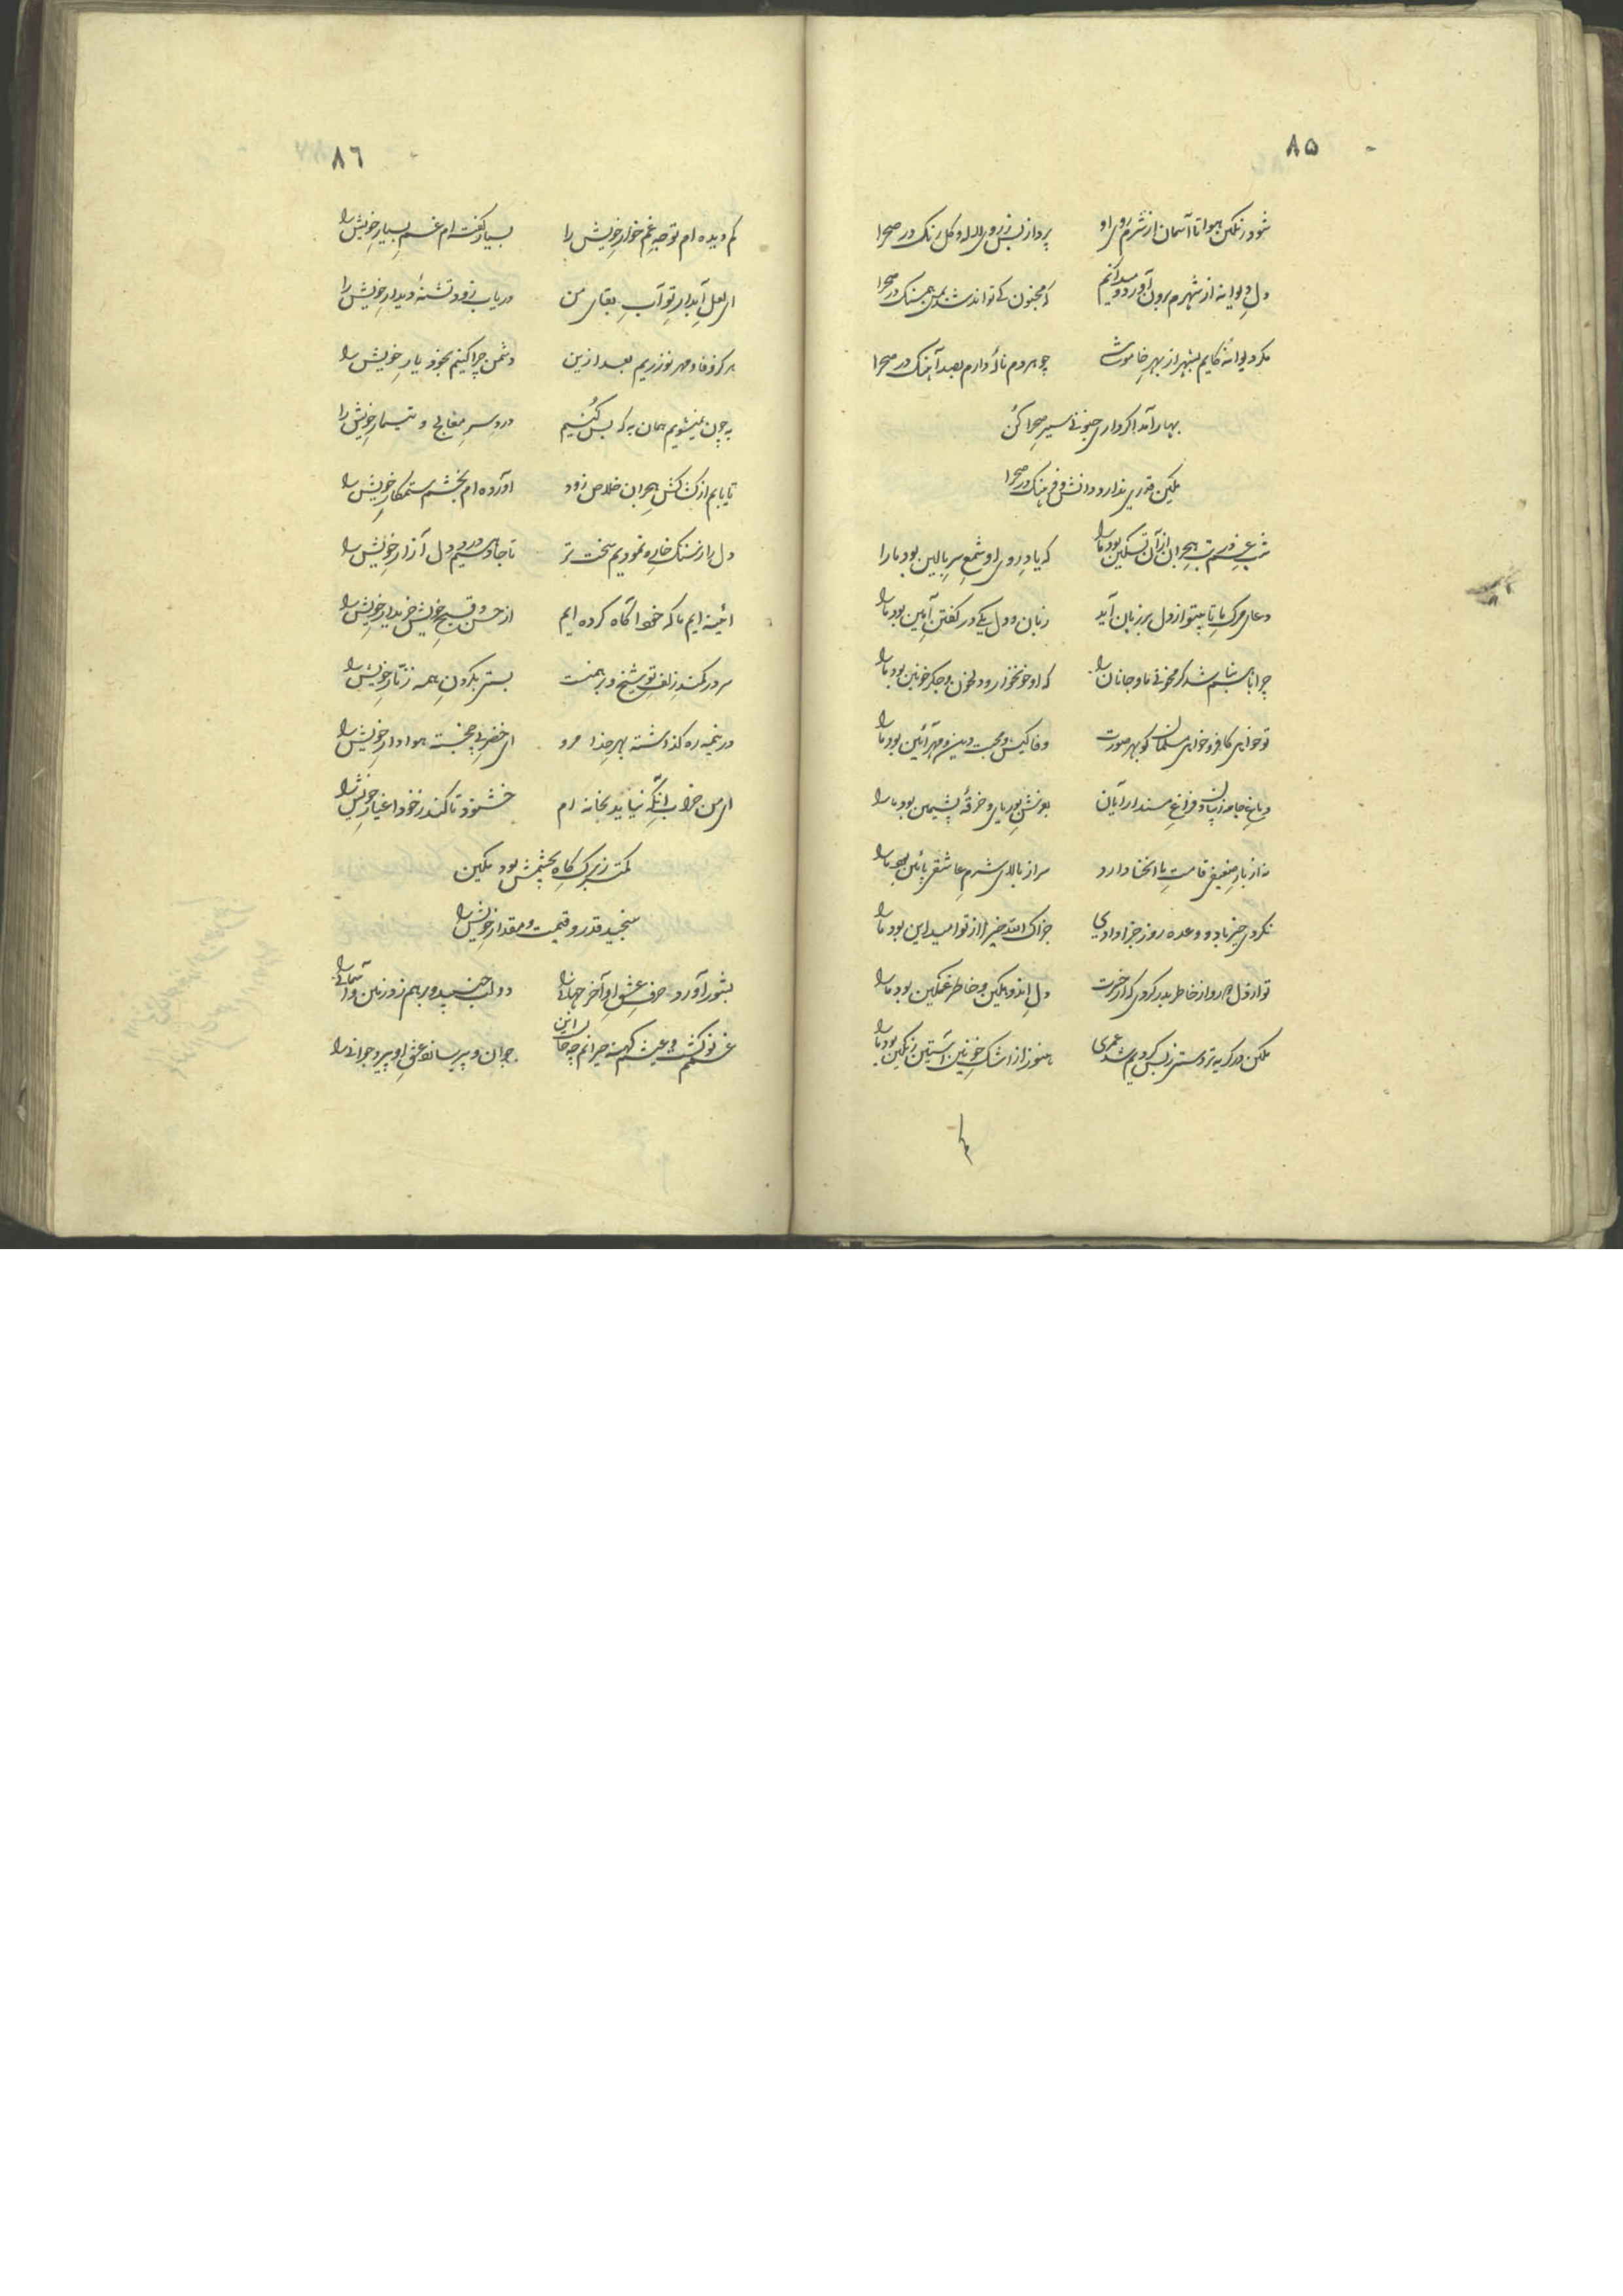 ۸۵
شود رنگین هوا تا آسمان از شرم روی او
پرد از بس ز روی لاله و گل رنگ در صحرا
دل دیوانه از شهرم برون آورد و میدانم
که مجنون کے تواند شد بمن همسنگ در صحرا
مگر دیوانهٔ کایم بشهر از بهر خاموشے
چو هر دم نالهٔ دارم بصد آهنگ در صحرا
بهار آمد اگر داری جنونے سیر صحرا کن
مکین قدری ندارد دانش و فرهنگ در صحرا
شب هجران از آن تسکین بود ما را
که یاد روی او شمع سر بالین بود ما را
دعای مرگ ما تا بیتو از دل بر زبان آید
زبان و دل یکے در گفتن آمین بود ما را
چرا باهم نباشم شد گر مخونے ما و جانان را
که او خونخوار و دلخون و جگر خونین بود ما را
تو خواهی کافر و خواهی مسلمان گو بهر صورت
وفا کیش و محبت دین و مهر آئین بود ما را
دماغ جامه زیبان و فراغ مسند آرایان
بعونش بوریای و خرقهٔ پشمین بود ما را
نه از بار ضعیفی قامت ما انحنا دارد
سر از بالای شرم عاشقی پائین بود ما را
نکردی خیر باد و وعده روز جزا دادی
جزاک الله خیرا از تو امید این بود ما را
تو از دل رو از خاطر بدر کردی که از هجرت
دل اندوهگین و خاطر غمگین بود ما را
مکین در گریه تردستی ز بس کردیم شد عمری
هنوز از اشک خونین آستین رنگین بود ما را
۸٦
کم دیده ام توجه غمخوار خویش را
بسیار گفته ام غم بسیار خویش را
ای لعل آبدار تو آب بقای من
دریاب زود تشنهٔ دیدار خویش را
هرگز وفا و مهر نورزیم بعد ازین
دشمن چرا کنیم بخود یار خویش را
به چون نمیشویم همان به که بس کنیم
درد سر معالج و تیمار خویش را
تا یابم از کشاکش هجران خلاص زود
آورده ام بخشم ستمگار خویش را
دل را ز سنگ خاره نمودیم سخت تر
تا جا دهیم درو دل آزار خویش را
آئینه ایم ما که خود آگاه کرده ایم
از حسن و قبح خویش خریدار خویش را
سر در کمند زلف تو شیخ و برهمنت
بستر بگردن همه زنار خویش را
در نیمه ره گذاشته بهر خدا مرو
ای خضر پی خجسته هوادار خویش را
ای من خراب آنکه نیاید بخانه ام
خشنود تا کند ز خود اغیار خویش را
کمتر ز برگ کاه بچشمش بود مکین
سنجید قدر و قیمت و مقدار خویش را
بشور آورد حرف عشق او آخر جهانے را
دو لب جنبید و برهم زد زمین و آسمانے را
غمم نو گشت و عیشم کهنه حیرانم چه حالست این
جوان و پیر سازد عشق او پیر و جوانے را